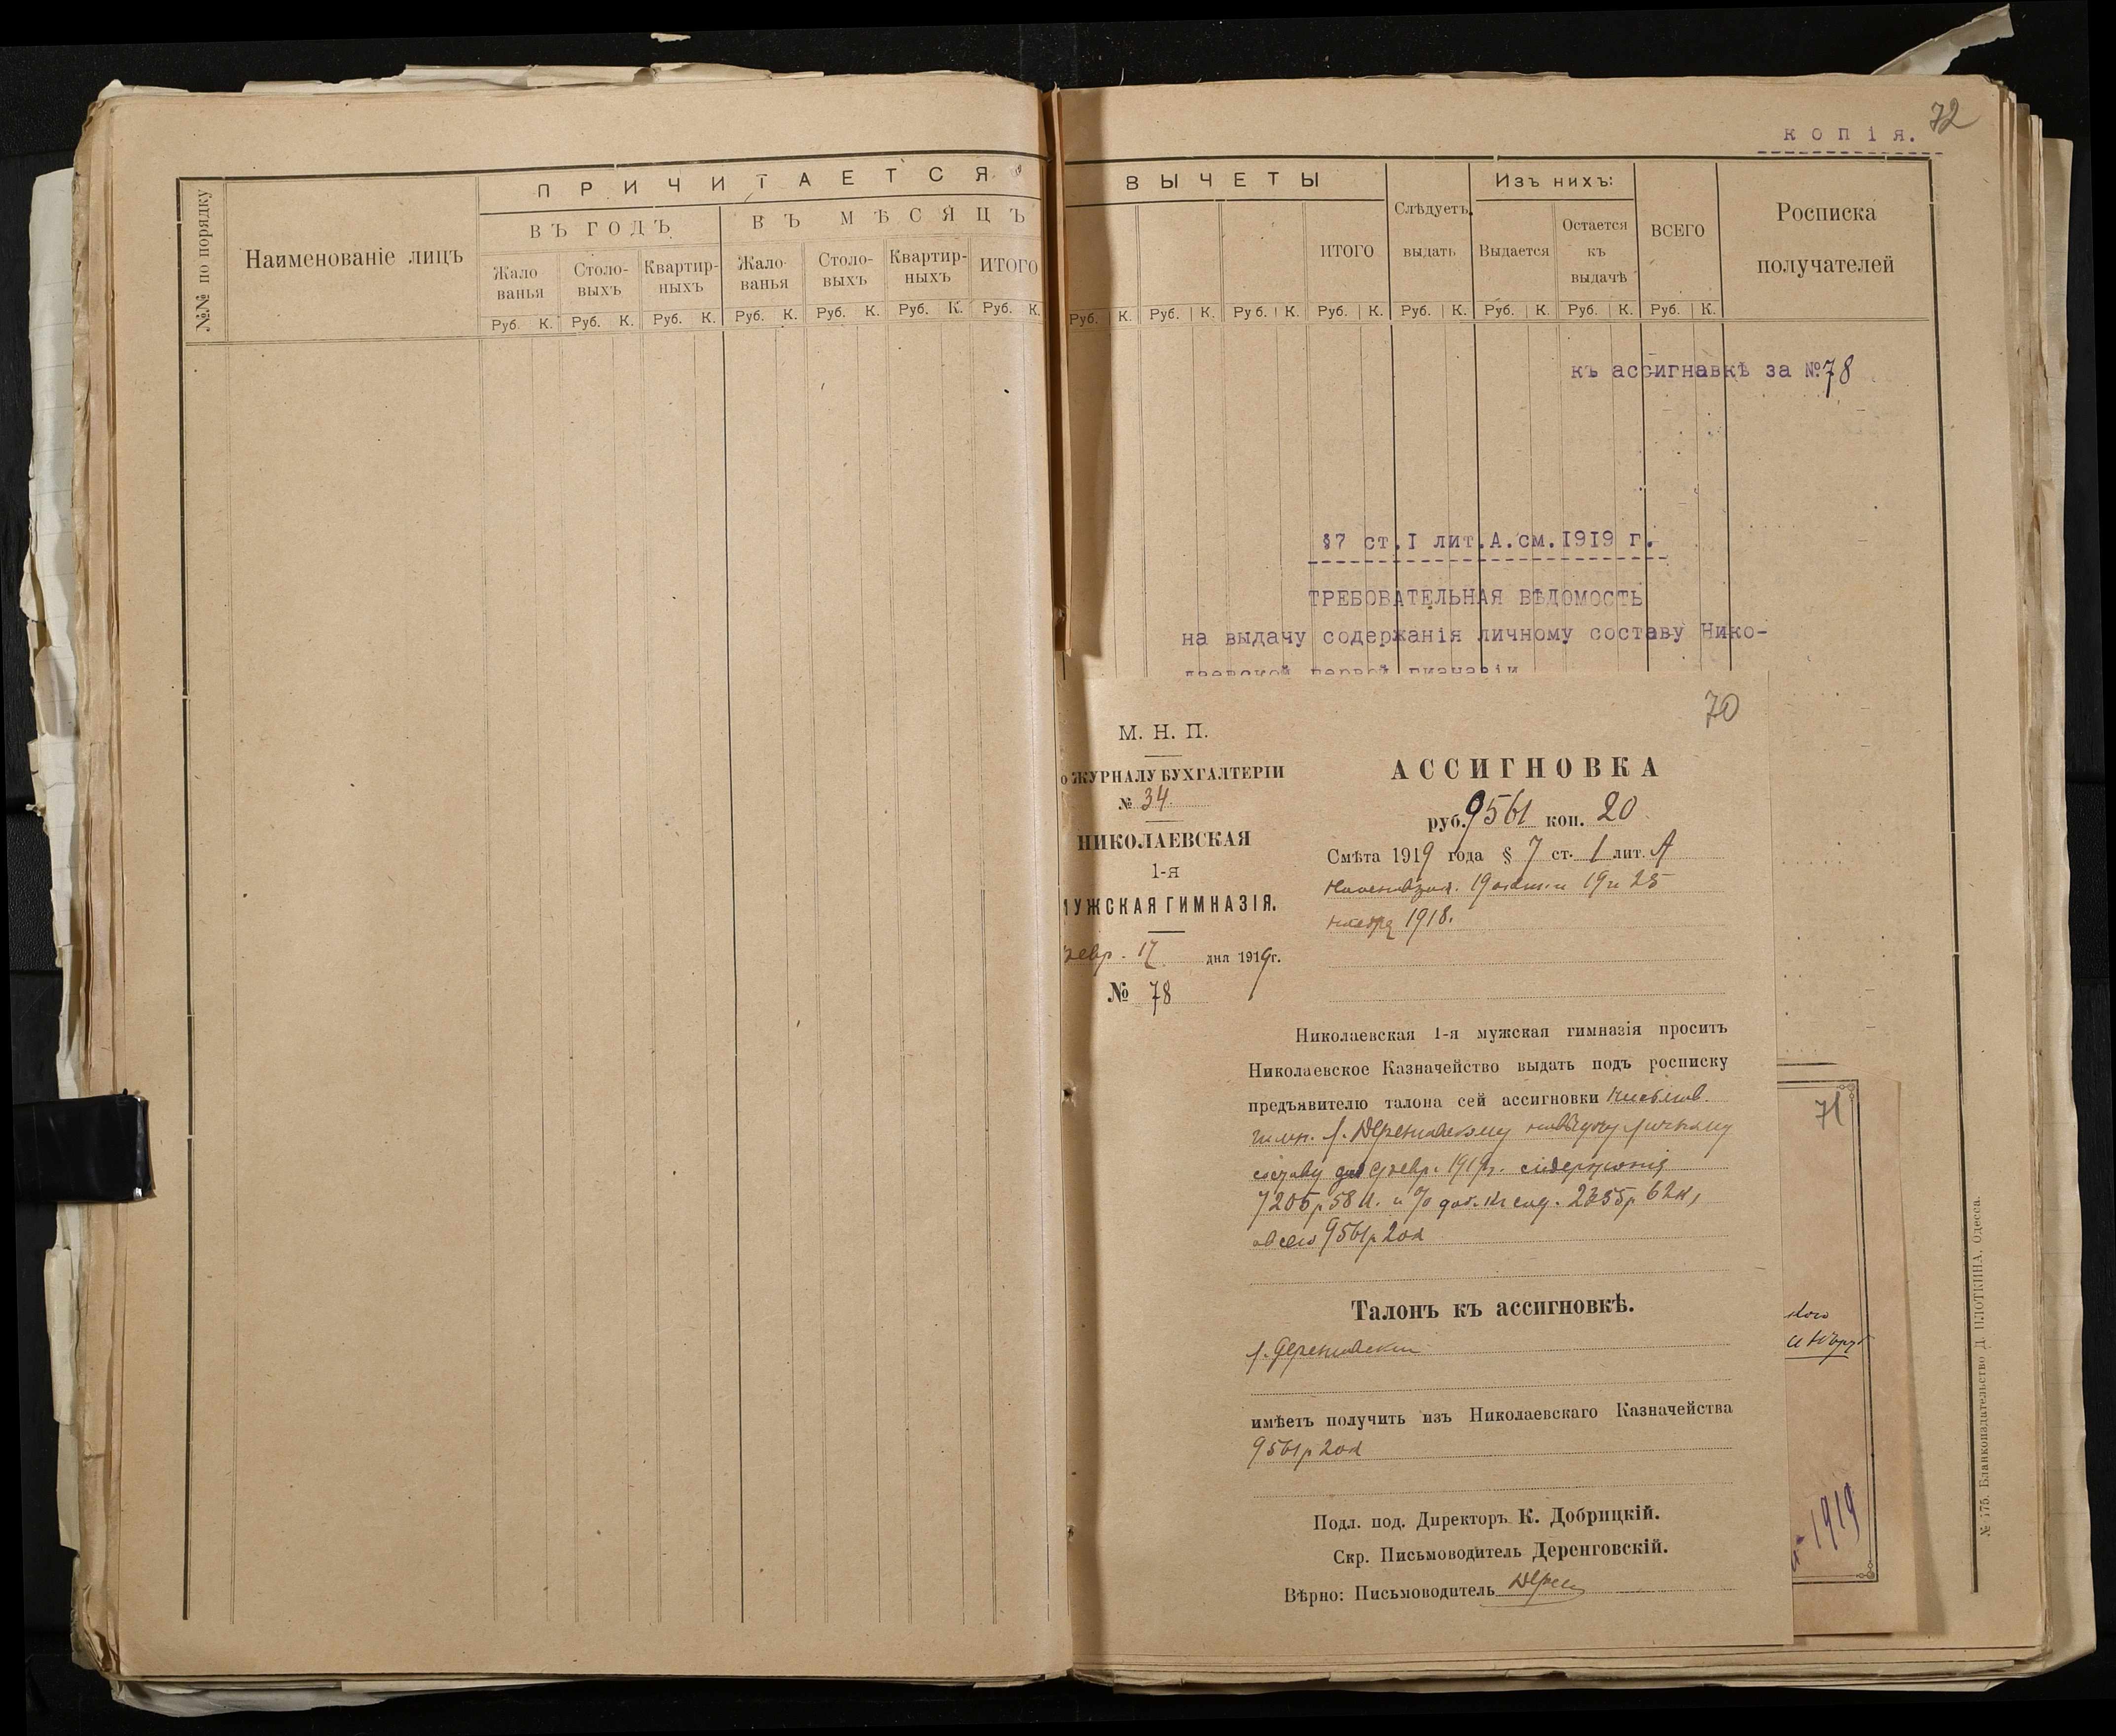 №№ по порядку
Наименованіе лицъ
ПРИЧИТАЕТСЯ
ВЪ ГОДЪ
ВЪ МѢСЯЦЪ
Жало-
ванья
Столо-
выхъ
Квартир-
ныхъ
Жало-
ванья
Столо-
выхъ
Квартир-
ныхъ
ИТОГО
Руб. К. Руб. К. Руб. К. Руб. К. Руб. К. Руб. К. Руб. К.
72
копія.
ВЫЧЕТЫ
ИТОГО
Слѣдуетъ
выдать
Изъ нихъ:
Выдается
Остается
къ
выдачѣ
ВСЕГО
Росписка
получателей
Руб. К. Руб. К. Руб. К. Руб. К. Руб. К. Руб. К. Руб. К. Руб. К.
къ ассигнавкѣ за №78
§7 ст.I лит.А.см.I9I9 г.
ТРЕБОВАТЕЛЬНАЯ ВѢДОМОСТЬ
на выдачу содержанія личному составу Нико-
лаевской первой гимназіи
70
М. Н. П.
о ЖУРНАЛУ БУХГАЛТЕРІИ
№ 34
НИКОЛАЕВСКАЯ
1-я
МУЖСКАЯ ГИМНАЗІЯ.
февр. 17 дня 1919г.
№ 78
АССИГНОВКА
руб. 9561 коп. 20
Смѣта 1919 года § 7 ст. 1 лит. А
19 и 25
ноября 1918.
Николаевская 1-я мужская гимназія проситъ
Николаевское Казначейство выдать подъ росписку
предъявителю талона сей ассигновки письмов.
гимн. Деренговскому на выдачу личному
составу за февр. 1919г. содержанія
7205р 58к. и % доб. къ сод. 2355р 62к,
всего 9561р 20к
Талонъ къ ассигновкѣ.
Деренговский
имѣетъ получить изъ Николаевскаго Казначейства
9561р 20к
Подл. под. Директоръ К. Добрицкій.
Скр. Письмоводитель Деренговскій.
Вѣрно: Письмоводитель
71
1919
№ 175. Бланкоиздательство Д. ПЛОТКИНА, Одесса.